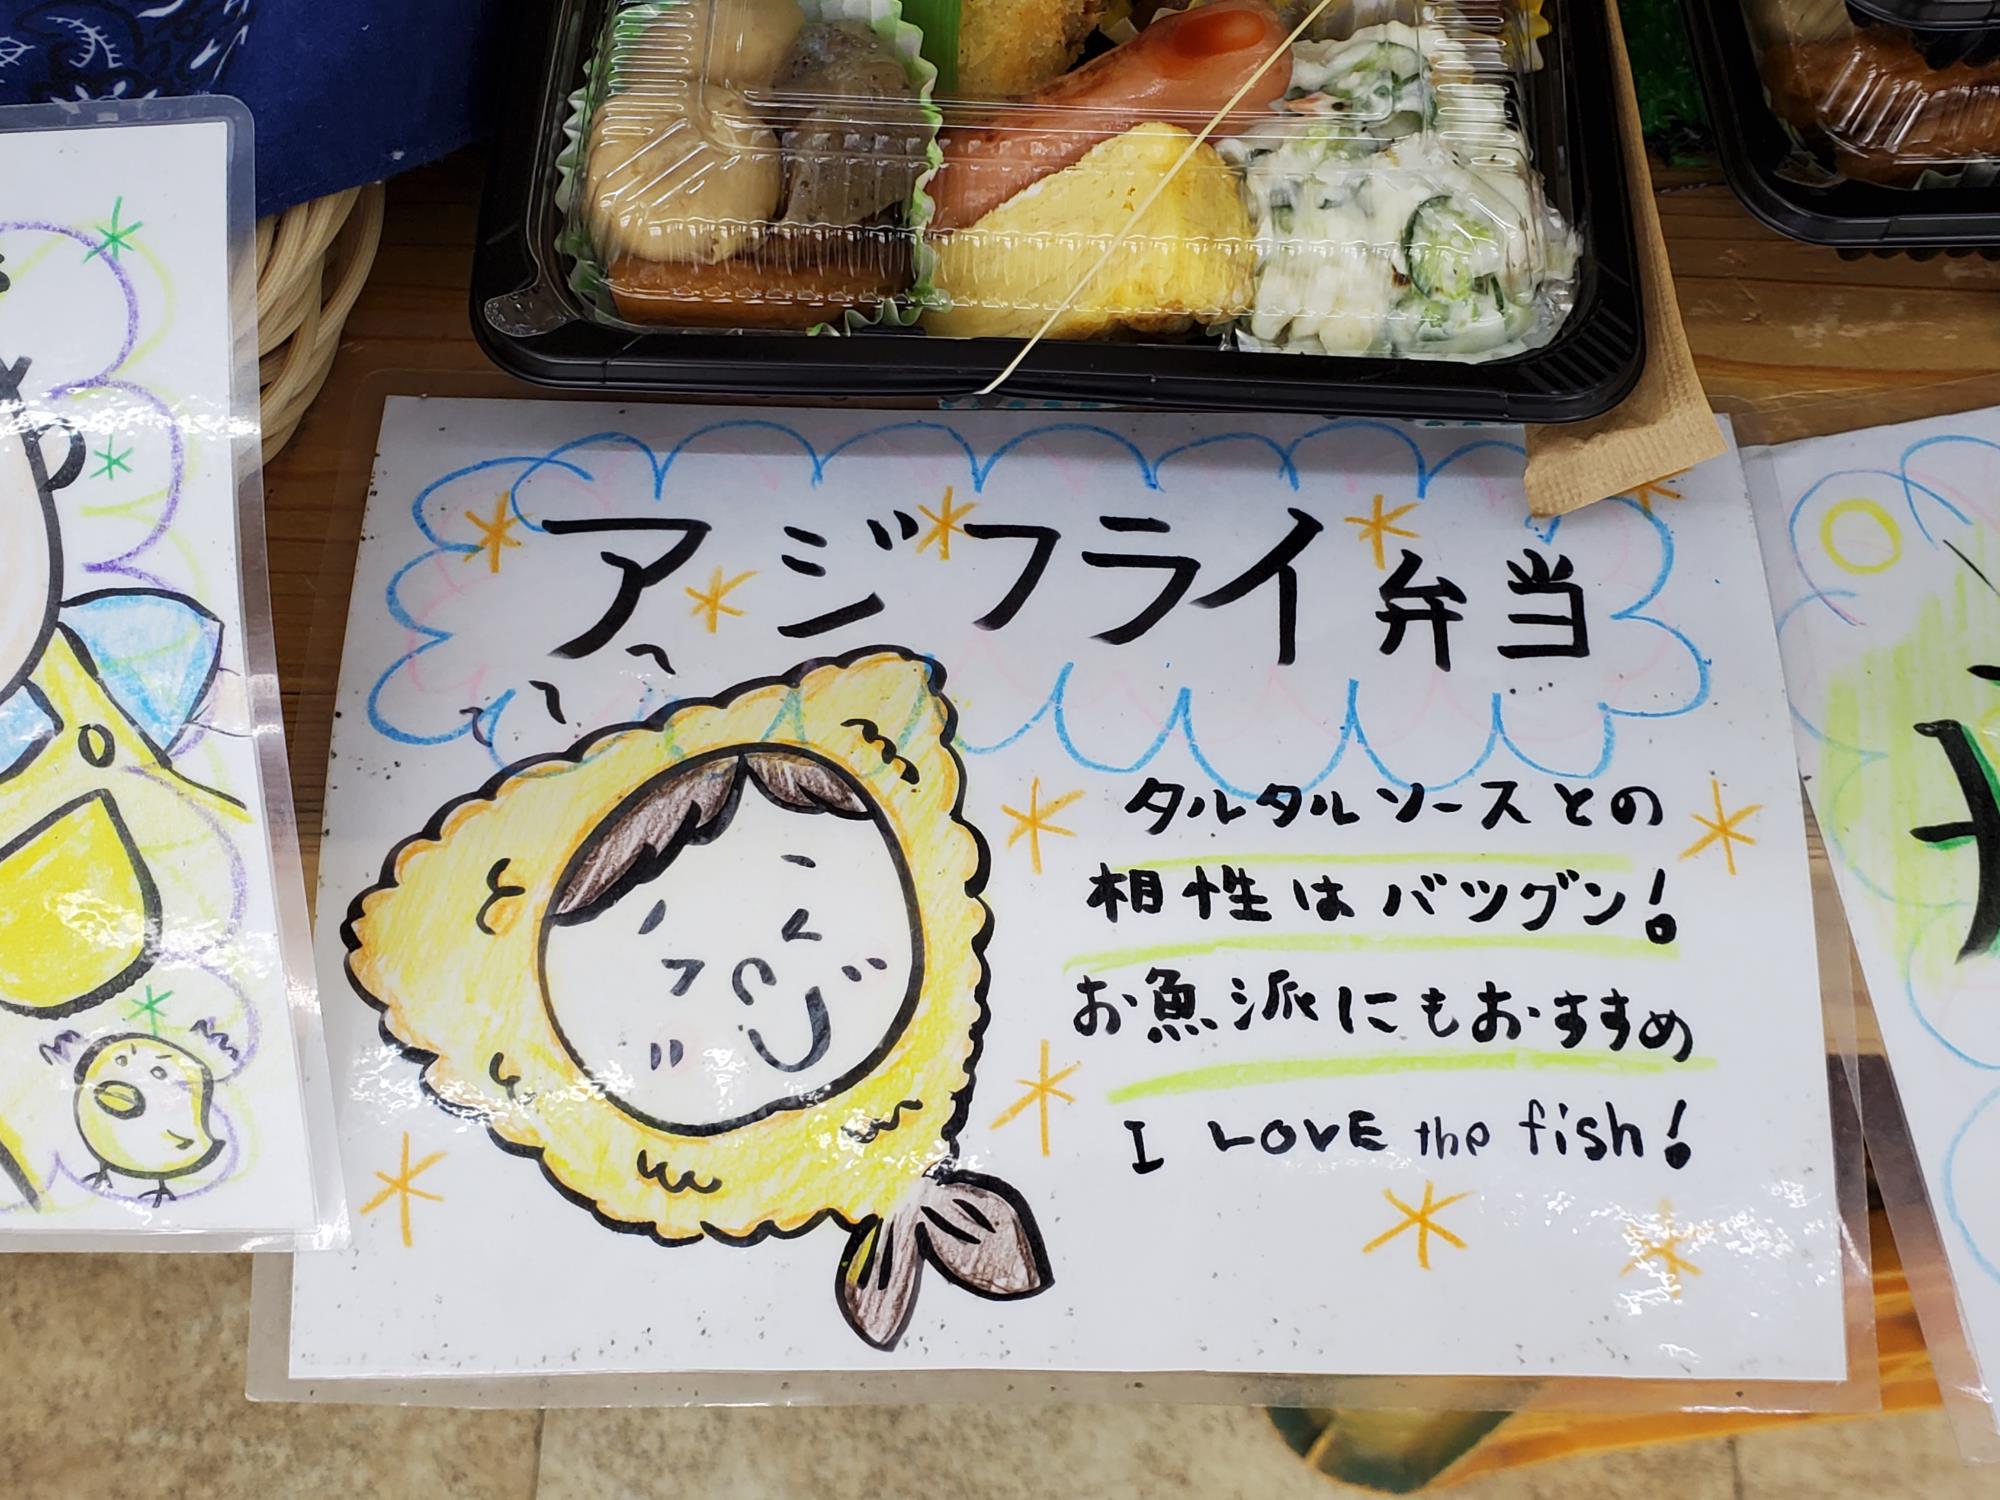 アジフライ弁当
タルタルソースとの
相性はバツグン!
お魚派にもおすすめ
I LOVE the fish!